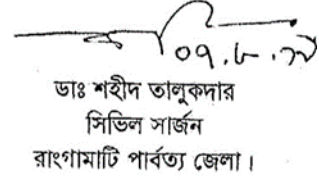 ০৭.৮.১৭
ডাঃ শহীদ তালুকদার
সিভিল সার্জন
রাংগামাটি পার্বত্য জেলা।